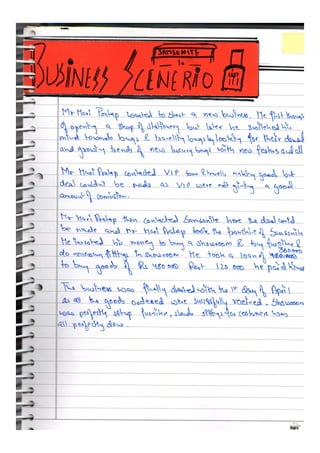 SAMSONITE
BUSINESS SCENERIO
Mr Hari Pratap wanted to start a new business. He first thought
of opening a shop of stationery but later he switched his
mind towards bags & travelling bags by looking for their demand
and growing trends of new luxury bags with new features and all
Mr Hari Pratap contacted VIP making good but
deal couldn't be made as VIP were not giving a good
amount of comission.
Mr Hari Pratap then contacted Samsonite here the deal could
be made and Mr Hari Pratap took the franchise of Samsonite
He invested his money to buy a showroom & buy &
do necessary fittings in showroom. He took a loan of 300000
to buy goods of Rs 480000 Rent 120000 He paid
The business was finally started with the 1st day of April
as all the goods ordered were successfully recived. Showroom
was perfectly setup furniture, for customers was
all perfectly done.